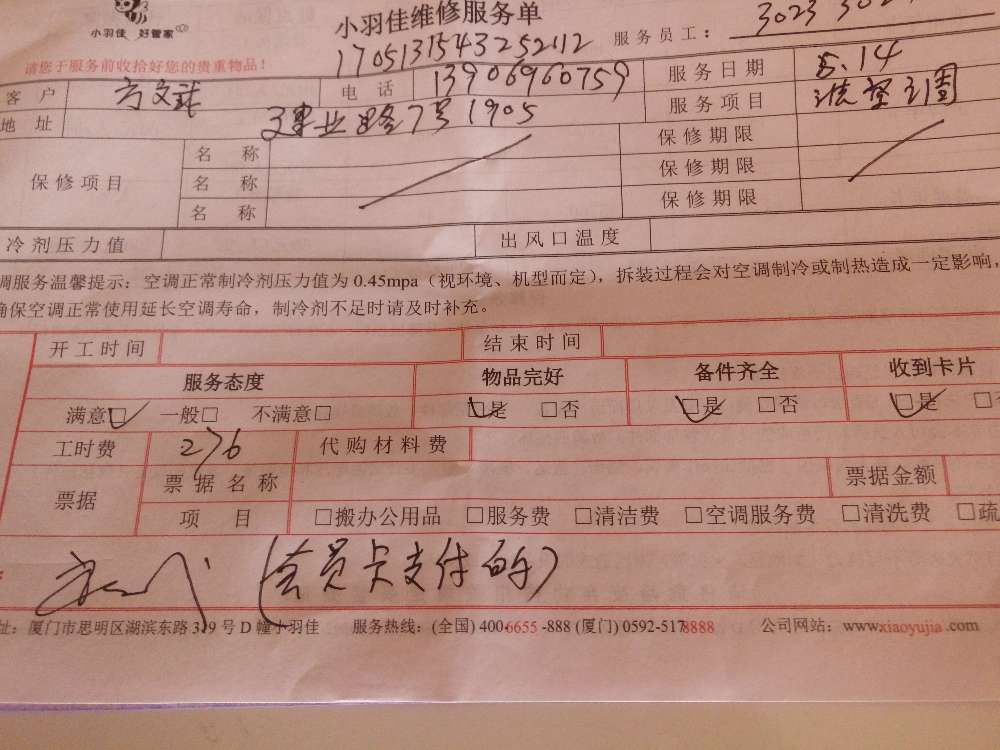 小羽佳维修服务单
小羽佳 好管家
1705131543252112 服务员工： 3023
请您于服务前收拾好您的贵重物品！
客户 方文 电话 13906960759 服务日期 5.14
地址 建业路7号1905 服务项目 洗 空调
保修项目 名称 保修期限
名称 保修期限
名称 保修期限
冷剂压力值 出风口温度
调服务温馨提示：空调正常制冷剂压力值为 0.45mpa（视环境、机型而定），拆装过程会对空调制冷或制热造成一定影响，
确保空调正常使用延长空调寿命，制冷剂不足时请及时补充。
开工时间 结束时间
服务态度 物品完好 备件齐全 收到卡片
满意□ 一般□ 不满意□ □是 □否 □是 □否 □是 □
工时费 276 代购材料费
票据 票据名称 票据金额
项目 □搬办公用品 □服务费 □清洁费 □空调服务费 □清洗费 □疏
(会员卡支付的)
址：厦门市思明区湖滨东路 319 号 D 幢小羽佳 服务热线：(全国) 400-6655-888 (厦门) 0592-5178888 公司网站：www.xiaoyujia.com